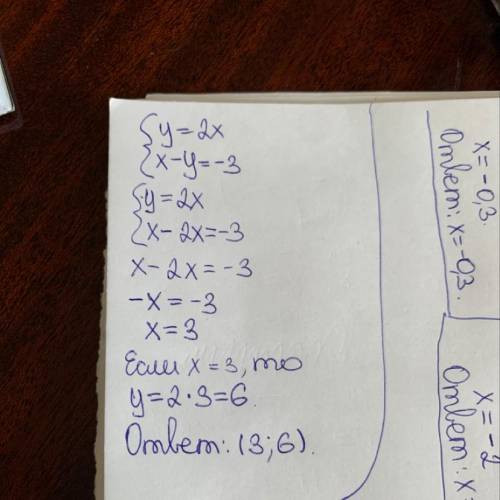 {y=2x
{x-y=-3
{y=2x
{x-2x=-3
x-2x=-3
-x=-3
x=3
Если x=3, то
y=2·3=6.
Ответ: (3;6).
x=-0,3.
Ответ: x=-0,3.
x=-2
Ответ: x=